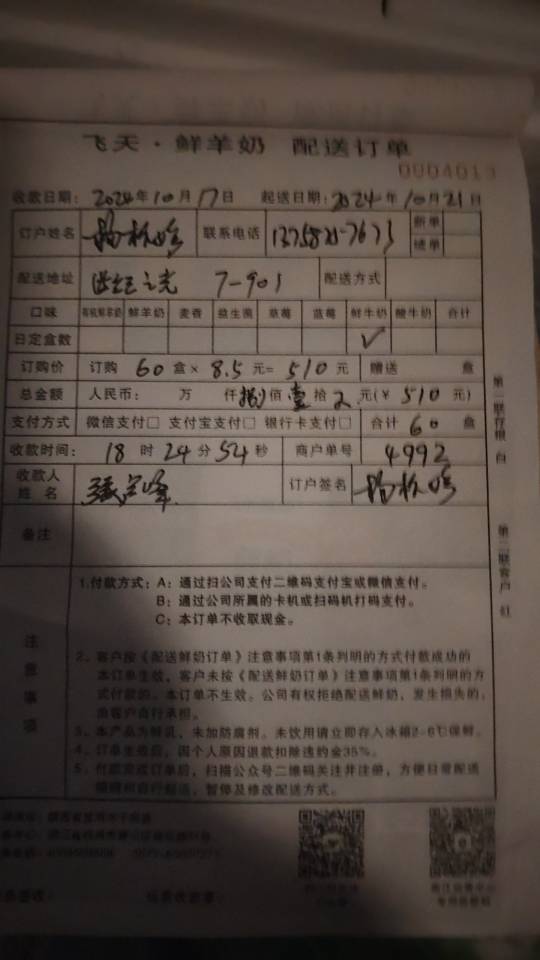 飞天·鲜羊奶 配送订单
0004013
收款日期：2024年10月17日 起送日期：2024年10月21日
订户姓名 联系电话 新单
续单
配送地址 7-901 配送方式
口味 鲜羊奶 麦香 益生菌 草莓 蓝莓 鲜牛奶 酸牛奶 合计
日定盒数 ✓
订购价 订购 60 盒× 8.5 元= 510 元 赠送 盒
总金额 人民币： 万 仟 佰 壹 拾 元(￥ 510 元)
支付方式 微信支付□ 支付宝支付□ 银行卡支付□ 合计 60 盒
收款时间： 18 时 24 分 54 秒 商户单号 4992
收款人姓名 订户签名
备注
第一联存根 白
第二联客户 红
注意事项
1.付款方式：A：通过扫公司支付二维码支付宝或微信支付。
B：通过公司所属的卡机或扫码机打码支付。
C：本订单不收取现金。
2、客户按《配送鲜奶订单》注意事项第1条列明的方式付款成功的
本订单生效，客户未按《配送鲜奶订单》注意事项第1条列明的方
式付款的，本订单不生效。公司有权拒绝配送鲜奶，发生损失的，
由客户自行承担。
3、本产品为鲜乳，未加防腐剂。未饮用请立即存入冰箱2-6℃保鲜。
4、订单生效后，因个人原因退款扣除违约金35%。
5、付款完成订单后，扫描公众号二维码关注并注册，方便日常配送
暂停及修改配送方式。